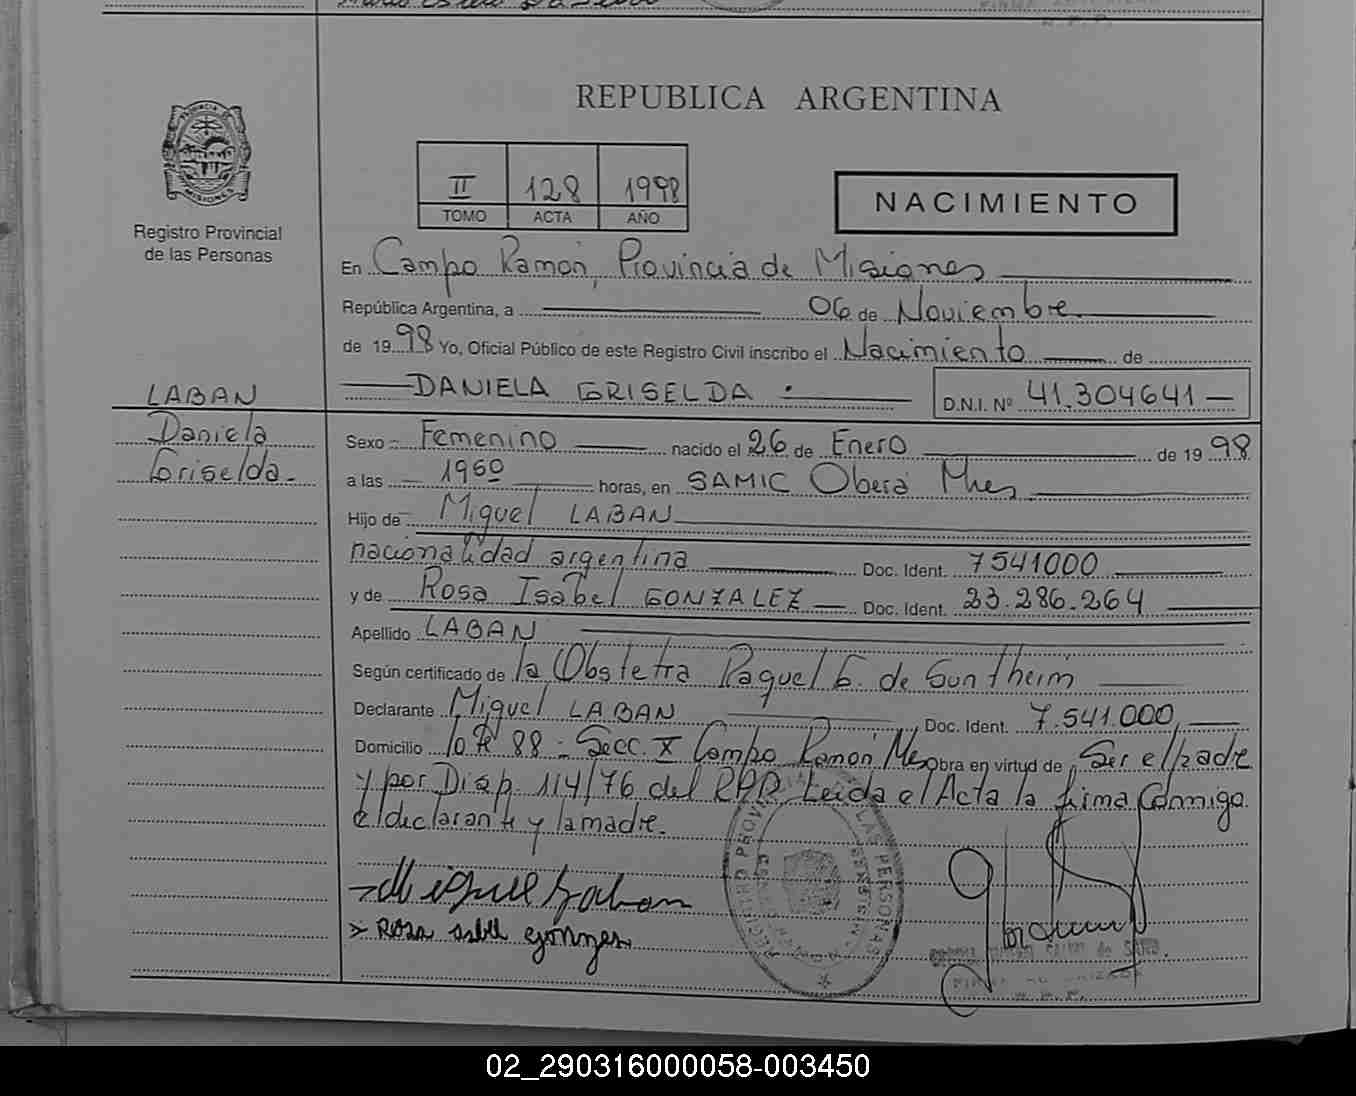 REPUBLICA ARGENTINA
PROVINCIA DE MISIONES
Registro Provincial
de las Personas
II 128 1998
TOMO ACTA AÑO
NACIMIENTO
En Campo Ramón, Provincia de Misiones
República Argentina, a 06 de Noviembre
de 1998 Yo, Oficial Público de este Registro Civil inscribo el Nacimiento de
DANIELA GRISELDA. D.N.I. Nº 41.304641
LABAN
Daniela
Griselda.
Sexo Femenino nacido el 26 de Enero de 1998
a las 1950 horas, en SAMIC Oberá Mnes
Hijo de Miguel LABAN
nacionalidad argentina Doc. Ident. 7541000
y de Rosa Isabel GONZALEZ Doc. Ident. 23.286.264
Apellido LABAN
Según certificado de la Obstetra Raquel G. de Suntheim
Declarante Miguel LABAN Doc. Ident. 7.541.000
Domicilio 88 - Secc. X Campo Ramón obra en virtud de Ser el padre
y por Disp. 114/76 del RPP Leída el Acta la firma Conmigo
el declarante y la madre.
Miguel Laban
ROSA
REGISTRO PROVINCIAL DE LAS PERSONAS
02_290316000058-003450